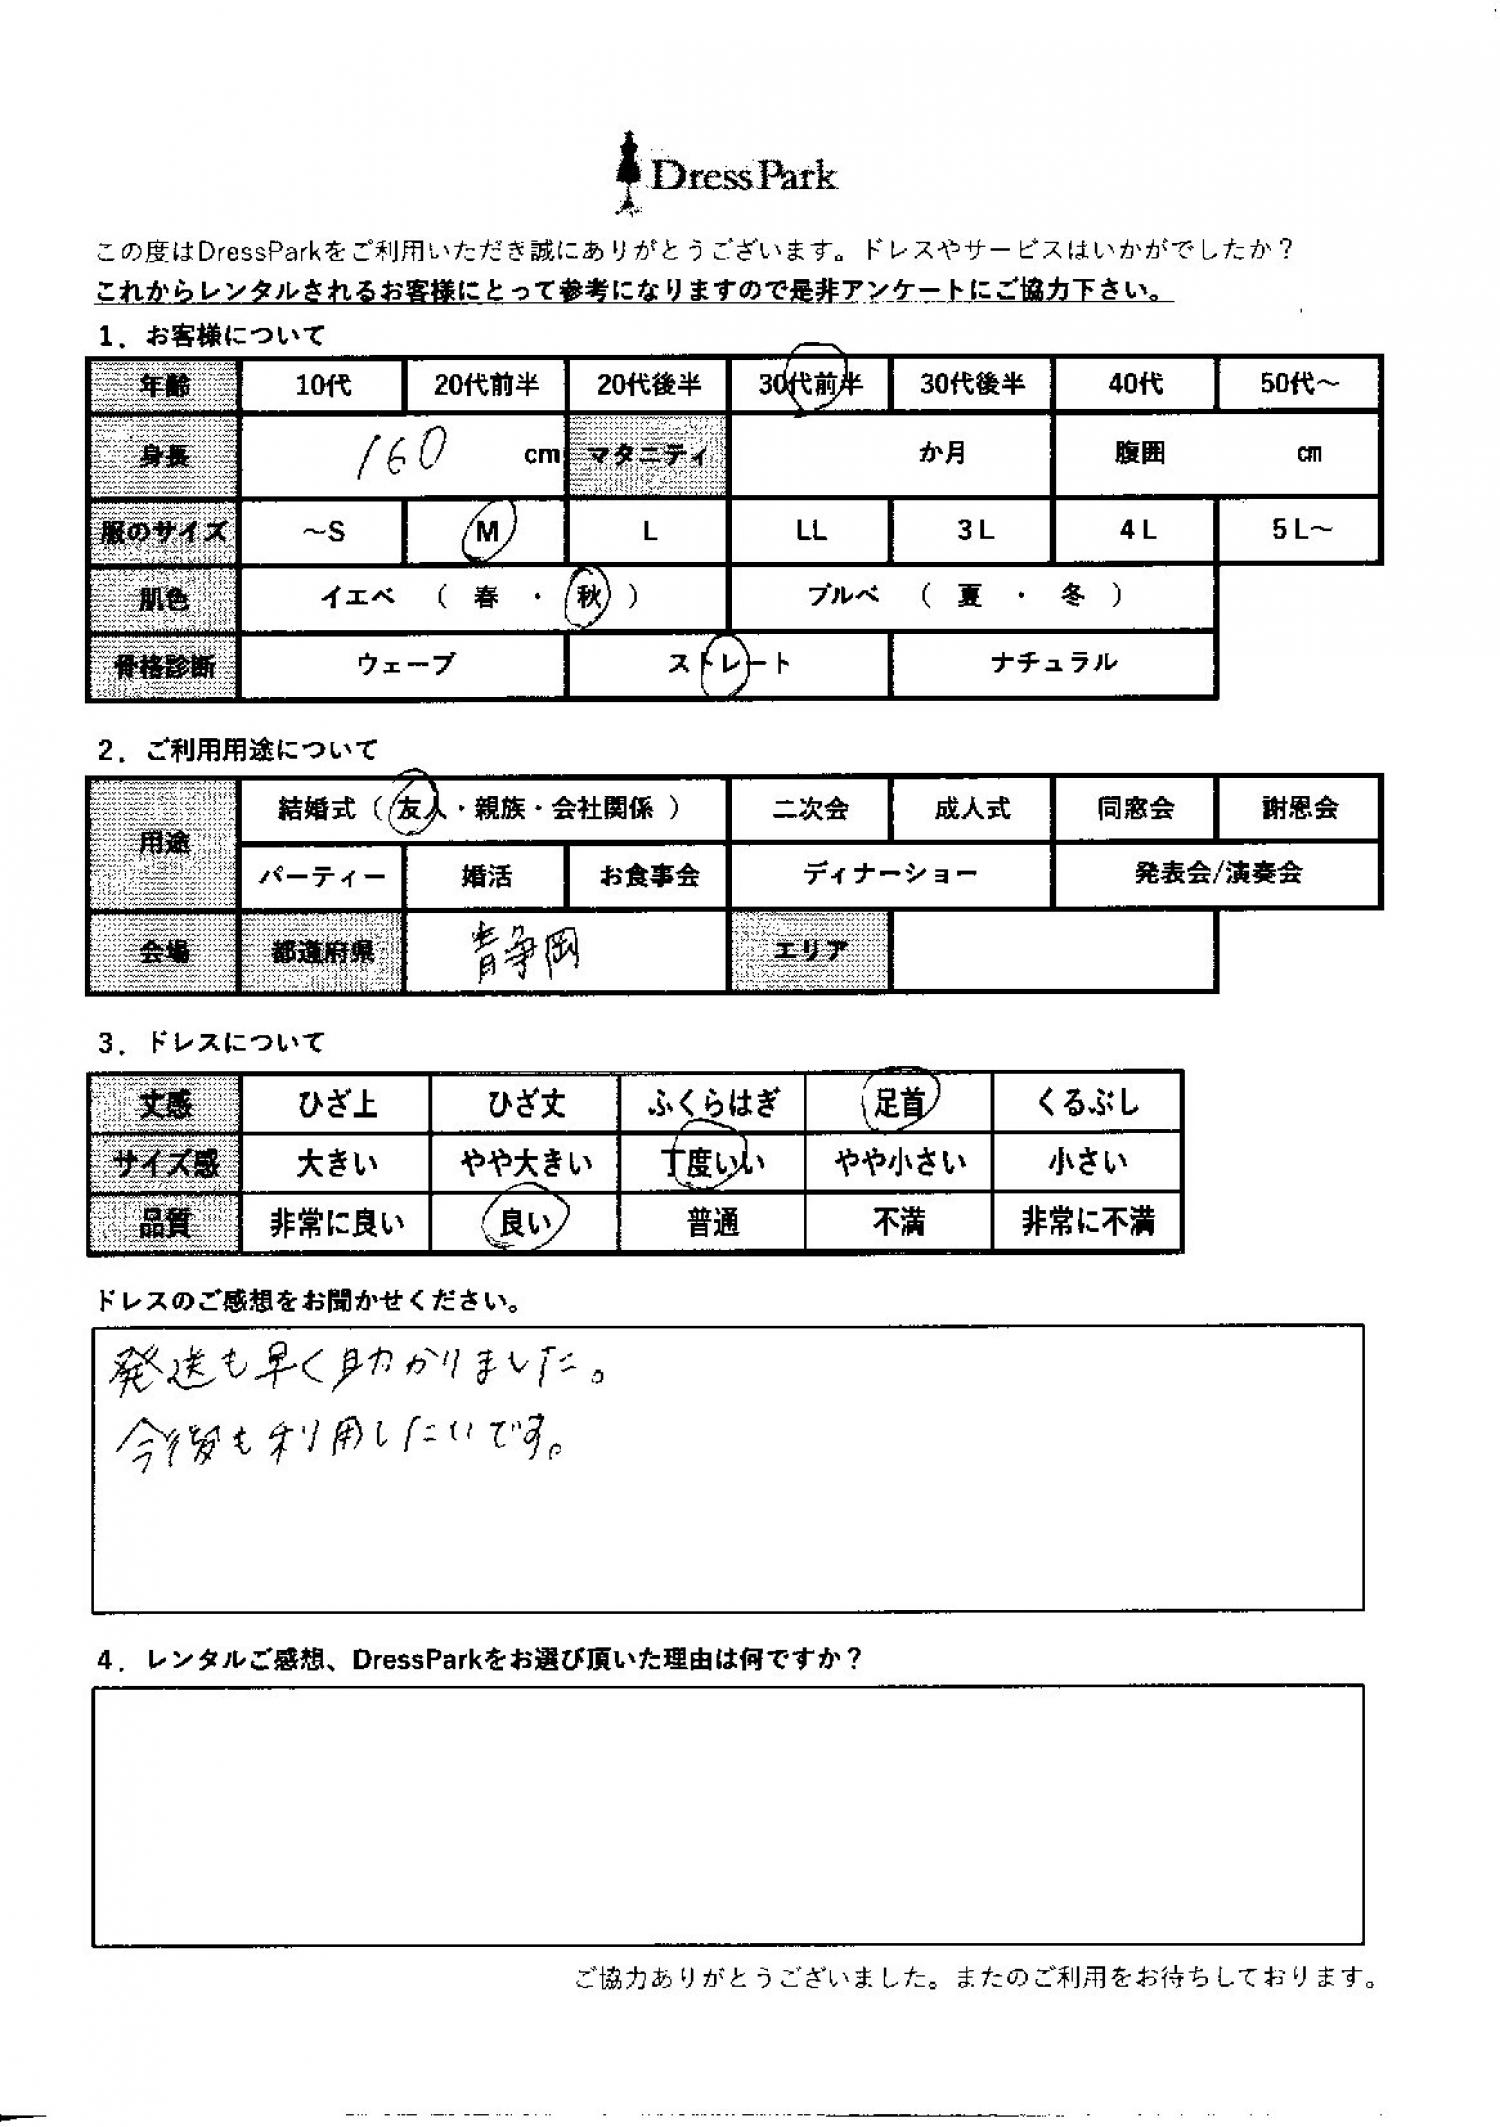 DressPark
この度はDressParkをご利用いただき誠にありがとうございます。ドレスやサービスはいかがでしたか？
これからレンタルされるお客様にとって参考になりますので是非アンケートにご協力下さい。
1．お客様について
年齢 10代 20代前半 20代後半 30代前半 30代後半 40代 50代～
身長 160 cm マタニティ か月 腹囲 cm
服のサイズ ～S M L LL 3L 4L 5L～
肌色 イエベ （ 春 ・ 秋 ） ブルベ （ 夏 ・ 冬 ）
骨格診断 ウェーブ ストレート ナチュラル
2．ご利用用途について
用途 結婚式（ 友人・親族・会社関係 ） 二次会 成人式 同窓会 謝恩会
パーティー 婚活 お食事会 ディナーショー 発表会/演奏会
会場 都道府県 静岡 エリア
3．ドレスについて
丈感 ひざ上 ひざ丈 ふくらはぎ 足首 くるぶし
サイズ感 大きい やや大きい 丁度いい やや小さい 小さい
品質 非常に良い 良い 普通 不満 非常に不満
ドレスのご感想をお聞かせください。
発送も早く助かりました。
今後も利用したいです。
4．レンタルご感想、DressParkをお選び頂いた理由は何ですか？
ご協力ありがとうございました。またのご利用をお待ちしております。